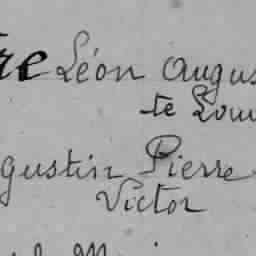 re Léon Augus
te Lou
gustin Pierre
Victor